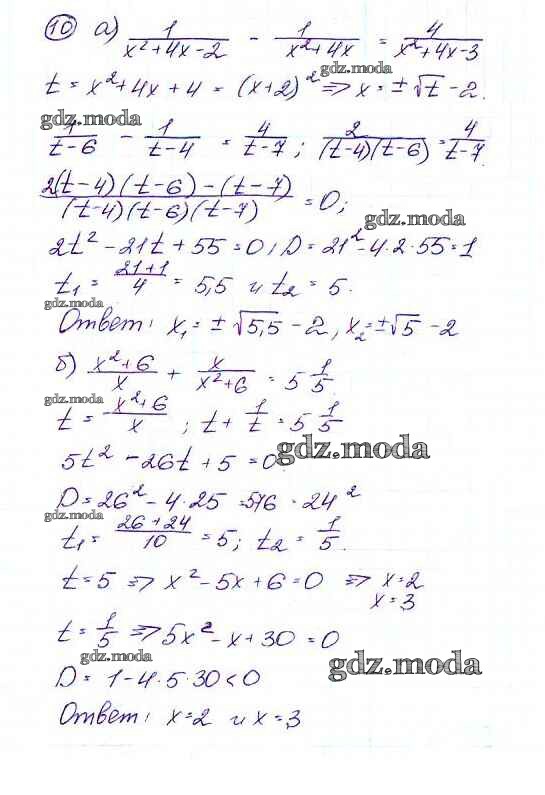 10 а) 1/(x²+4x-2) - 1/(x²+4x) = 4/(x²+4x-3)
t = x²+4x+4 = (x+2)² ⇒ x = ±√t - 2.
gdz.moda
1/(t-6) - 1/(t-4) = 4/(t-7); 2/((t-4)(t-6)) = 4/(t-7)
(2(t-4)(t-6)-(t-7))/((t-4)(t-6)(t-7)) = 0;
gdz.moda
2t² - 21t + 55 = 0, D = 21² - 4·2·55 = 1
t₁ = (21+1)/4 = 5,5 и t₂ = 5.
gdz.moda
Ответ: x₁ = ±√5,5 - 2, x₂ = ±√5 - 2
б) (x²+6)/x + x/(x²+6) = 5 1/5
gdz.moda
t = (x²+6)/x ; t + 1/t = 5 1/5
gdz.moda
5t² - 26t + 5 = 0
D = 26² - 4·25 = 576 = 24²
gdz.moda
t₁ = (26+24)/10 = 5; t₂ = 1/5.
t = 5 ⇒ x² - 5x + 6 = 0 ⇒ x = 2
x = 3
t = 1/5 ⇒ 5x² - x + 30 = 0
gdz.moda
gdz.moda
D = 1 - 4·5·30 < 0
Ответ: x = 2 и x = 3